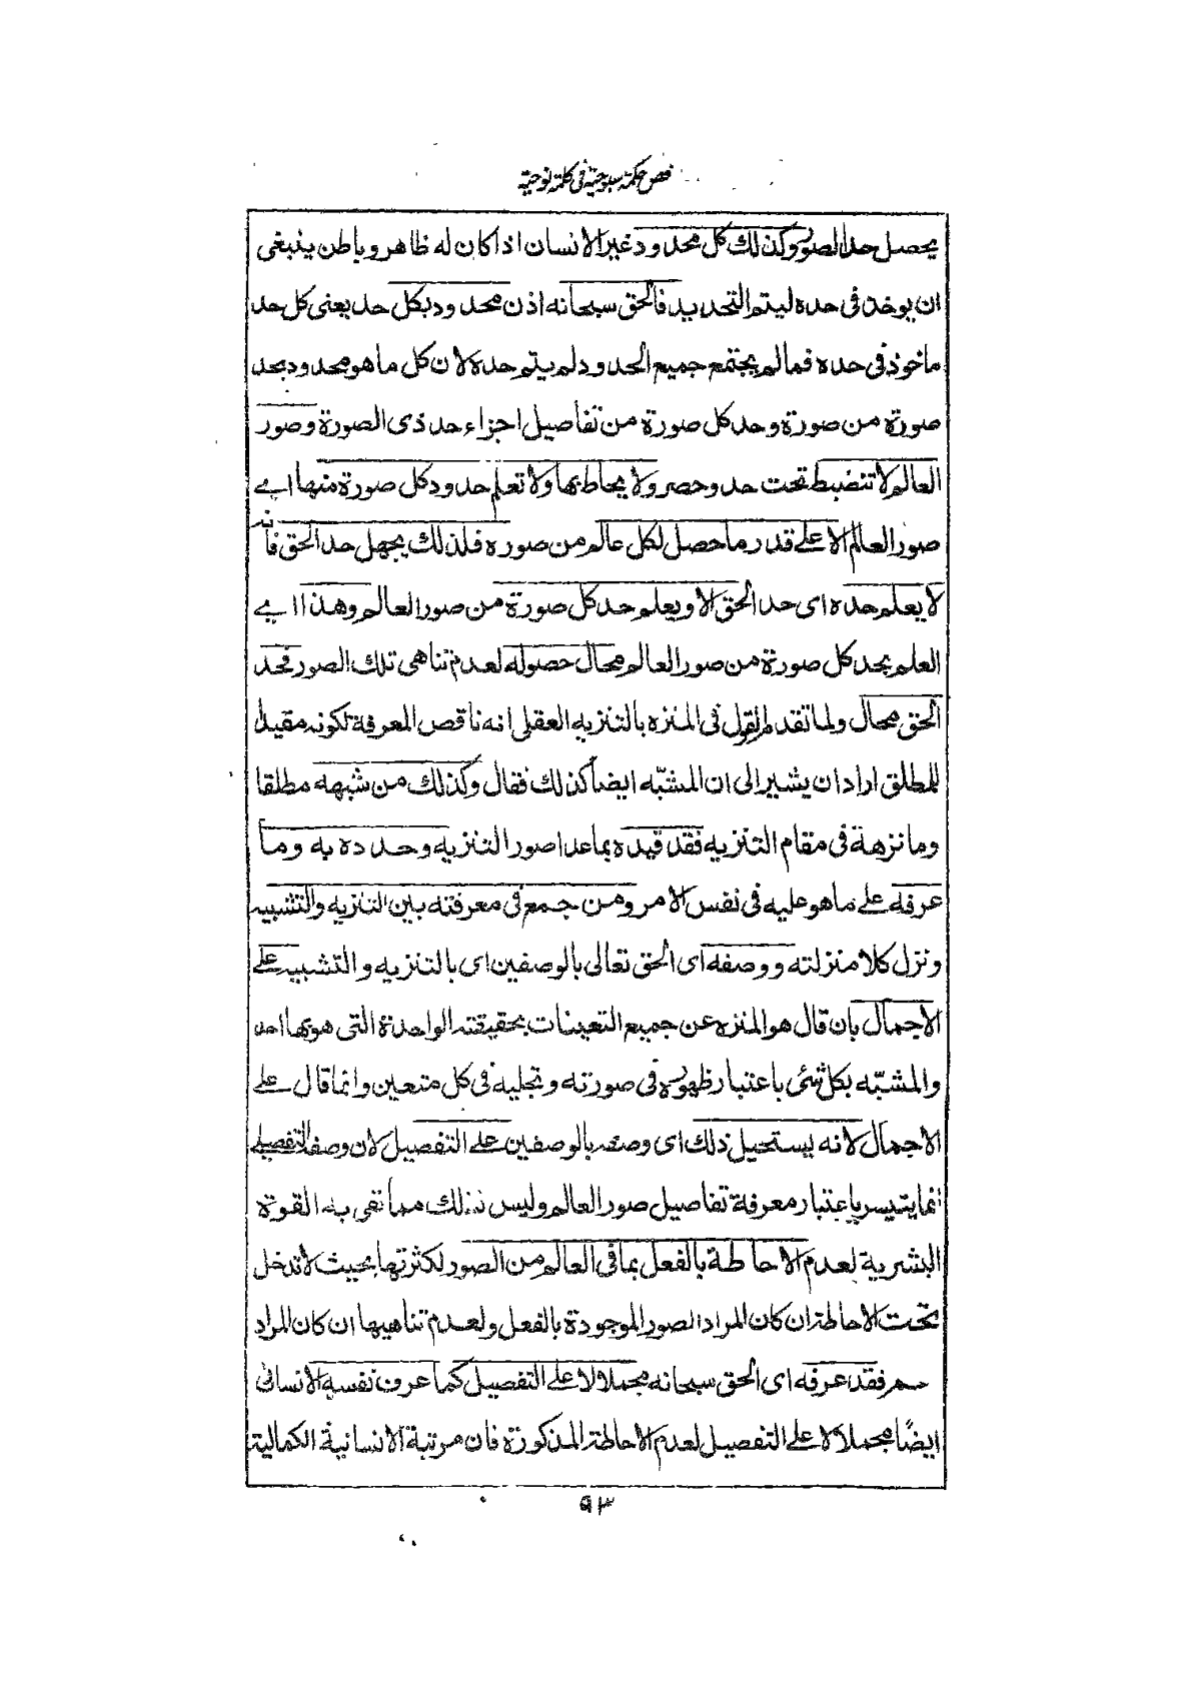 فص حكمة سبوحية فى كلمة نوحية
يحصل حد الصور وكذلك كل محدود غير الانسان اذا كان له ظاهر و باطن ينبغى
ان يوخذ فى حده ليتم التحديد فالحق سبحانه اذن محدود بكل حد يعنى كل حد
ماخوذ فى حده فما لم يجتمع جميع الحدود لم يتم حده لان كل ما هو محدود بحد
صورة من صورة وحد كل صورة من تفاصيل اجزاء حد ذى الصورة وصور
العالم لا تنضبط تحت حد وحصر ولا يحاط بها ولا تعلم حدود كل صورة منها اے
صور العالم الا على قدر ما حصل لكل عالم من صوره فلذلك يجهل حد الحق فانه
لا يعلم حده اى حد الحق الا ويعلم حد كل صورة من صور العالم وهذا اے
العلم بحد كل صورة من صور العالم محال حصوله لعدم تناهى تلك الصور فحد
الحق محال ولما تقدم القول فى المنزه بالتنزيه العقلى انه ناقص المعرفة لكونه مقيدا
للمطلق اراد ان يشير الى ان المشبّه ايضا كذلك فقال وكذلك من شبهه مطلقا
وما نزهه فى مقام التنزيه فقد قيده بما عدا صور التنزيه وحدده به وما
عرفه على ما هو عليه فى نفس الامر ومن جمع فى معرفته بين التنزيه والتشبيه
ونزل كلا منزلته ووصفه اى الحق تعالى بالوصفين اى بالتنزيه و التشبيه على
الاجمال بان قال هو المنزه عن جميع التعينات بحقيقته الواحدة التى هو بها احد
والمشبّه بكل شئ باعتبار ظهوره فى صورته وتجليه فى كل متعين وانما قال على
الاجمال لانه يستحيل ذلك اى وصفه بالوصفين على التفصيل لان وصف التفصيلے
انما يتيسر باعتبار معرفة تفاصيل صور العالم وليس ذلك مما تفى به القوة
البشرية لعدم الاحاطة بالفعل بما فى العالم من الصور لكثرتها بحيث لا تدخل
تحت الاحاطة ان كان المراد الصور الموجودة بالفعل ولعدم تناهيها ان كان المراد
فقد عرفه اى الحق سبحانه مجملا لا على التفصيل كما عرف نفسه الانسانى
ايضًا مجملا لا على التفصيل لعدم الاحاطة المذكورة فان مرتبة الانسانية الكمالية
٩٣